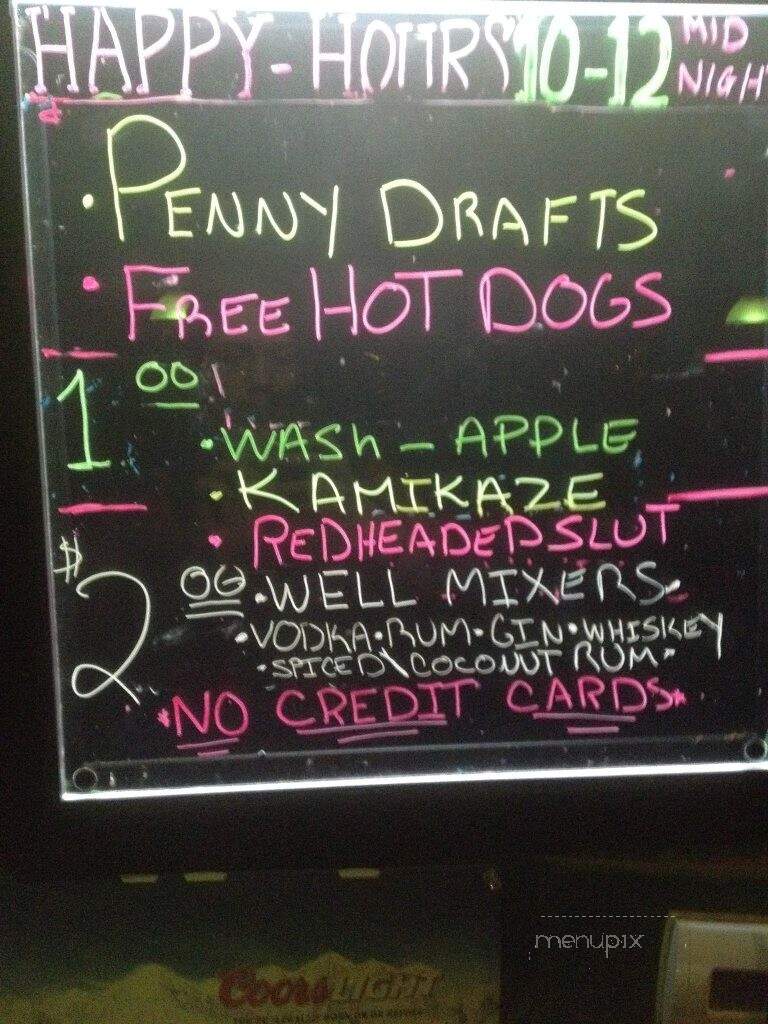 HAPPY-HOURS 10-12 MID NIGH
• PENNY DRAFTS
• FREE HOT DOGS
1 00
• WASH - APPLE
• KAMIKAZE
• REDHEADED SLUT
$2 00 • WELL MIXERS •
• VODKA • RUM • GIN • WHISKEY
• SPICED\COCONUT RUM •
*NO CREDIT CARDS*
menupix
Coors LIGHT